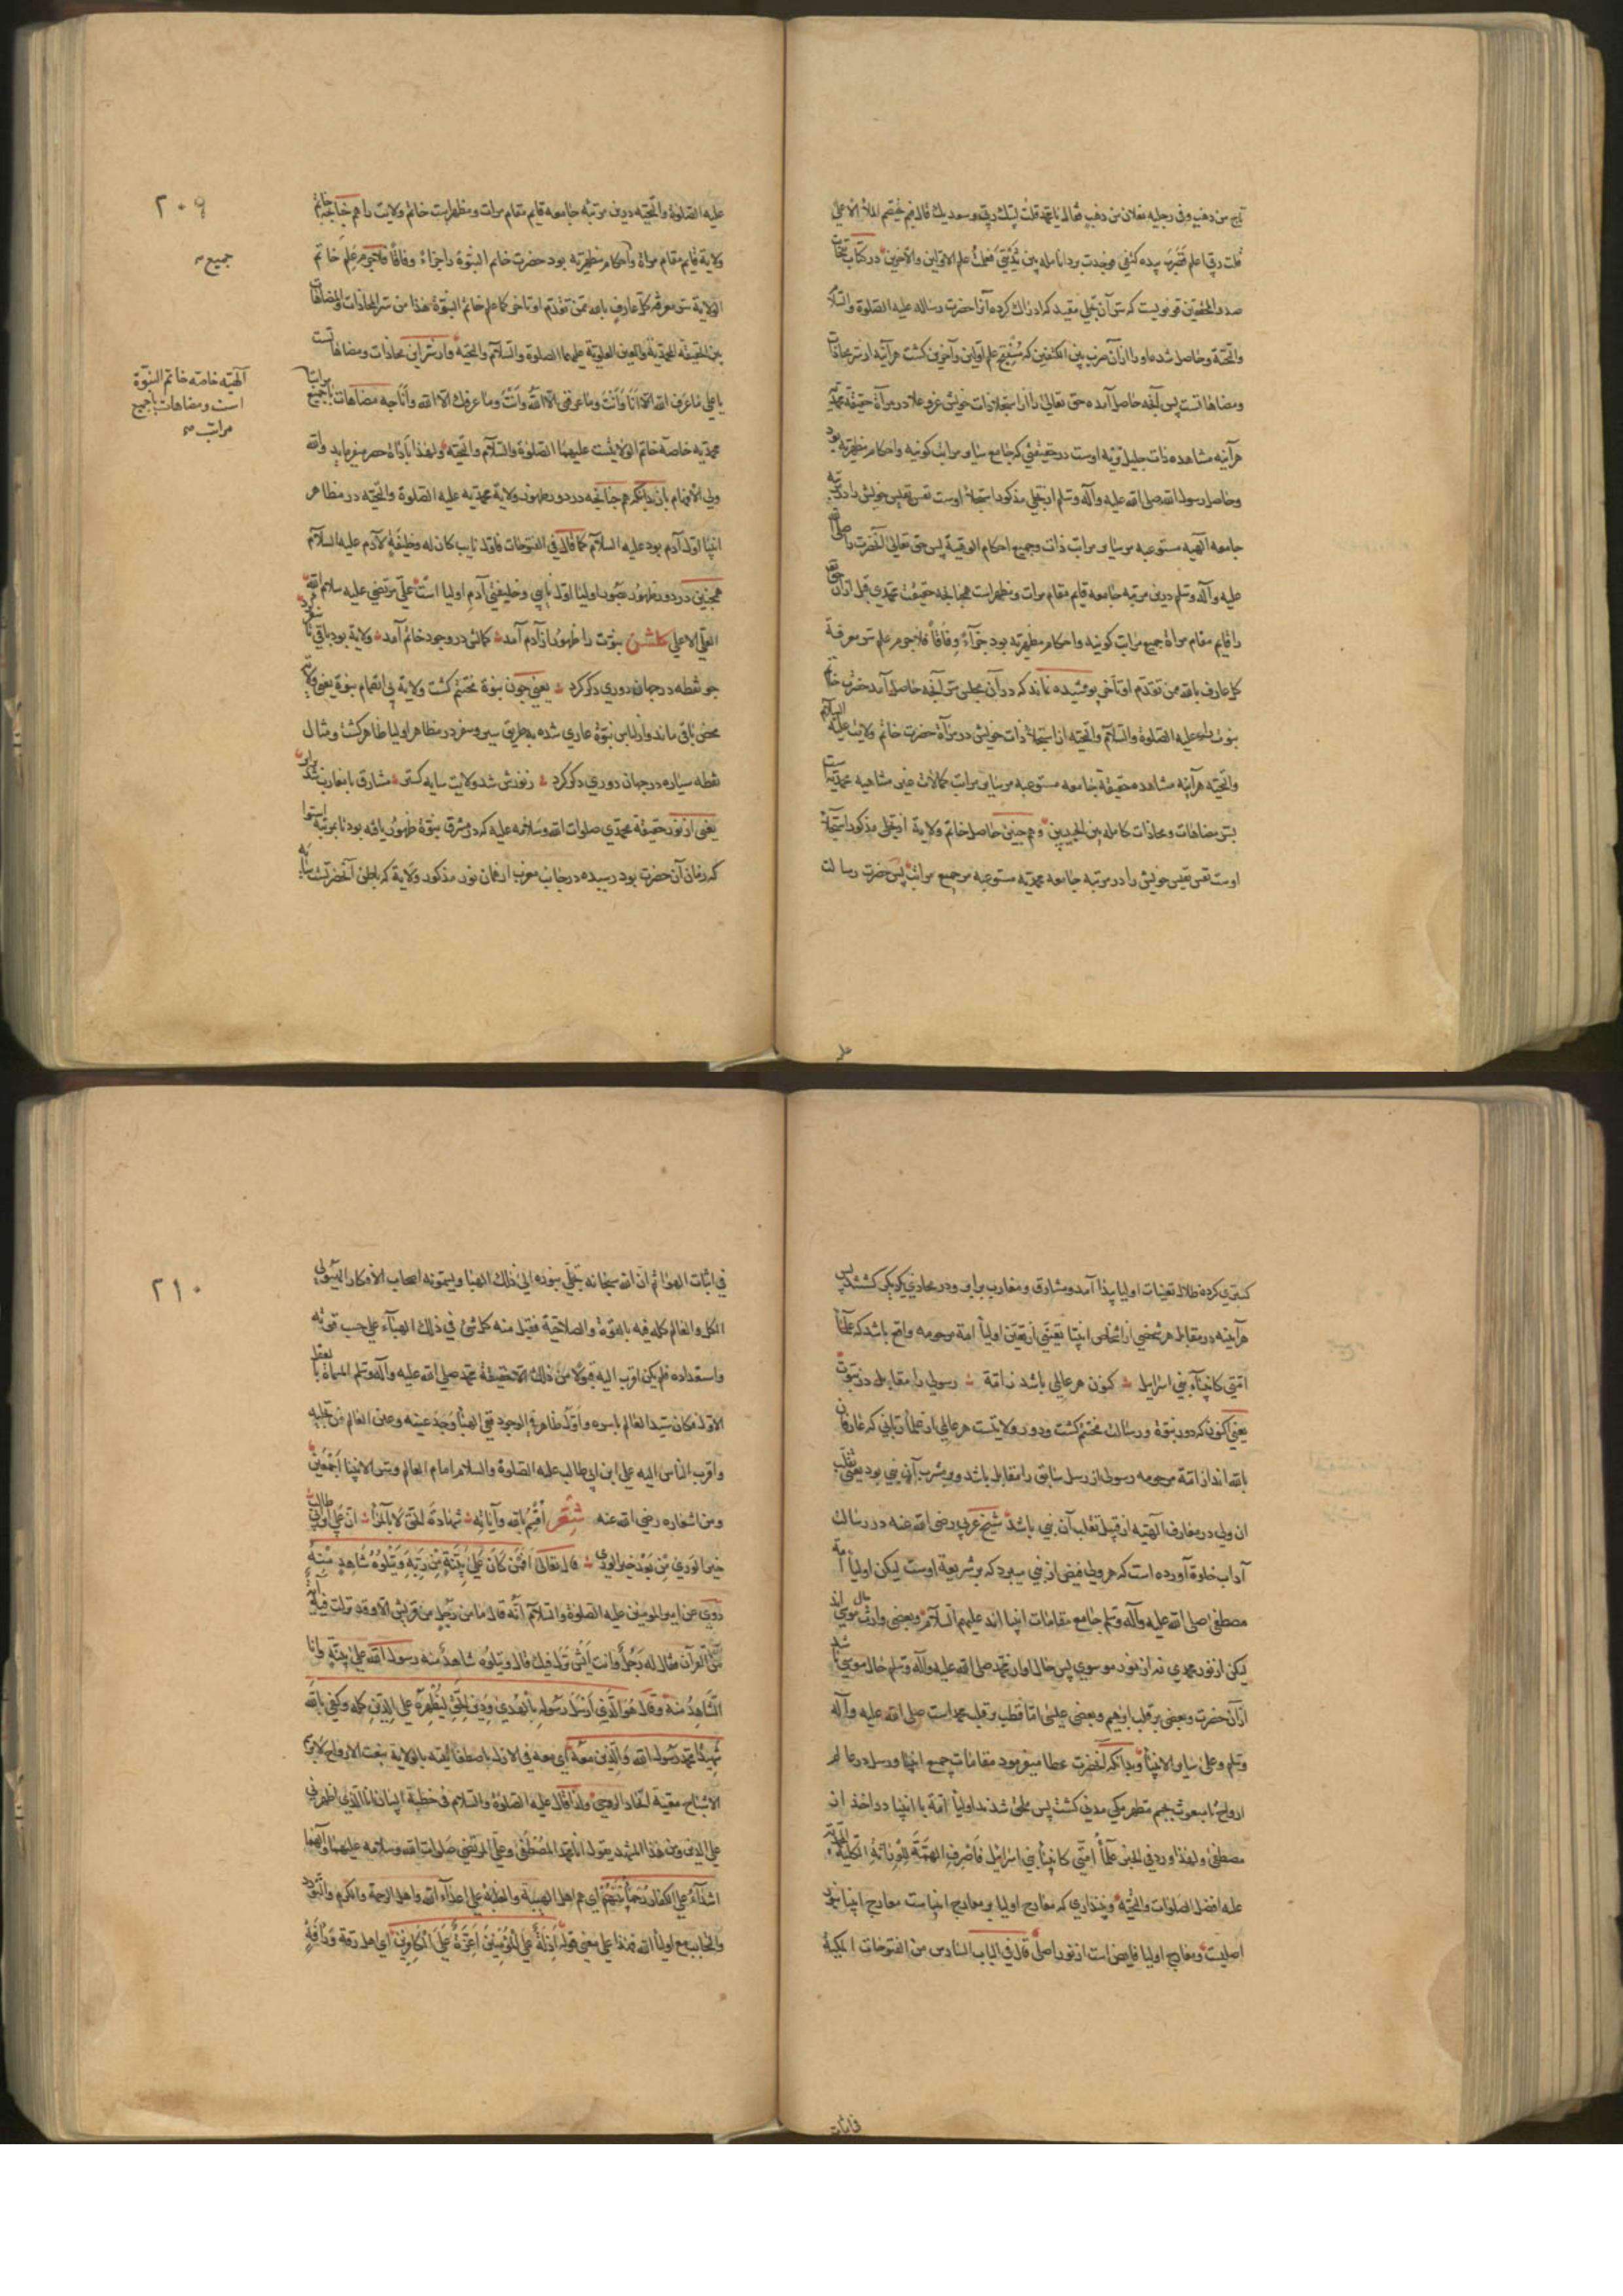 تاج من ذهب وفی رجلیه نعلان من ذهب فقال یا محمد قلت لبیك ربی وسعدیك قال فیم یختصم الملأ الاعلی
قلت ربی اعلم فضرب یده كتفی فوجدت برد انامله بین ثدیی فعلمت علم الاولین والآخرین در كتاب
صدر المحققین قونویست كه سر آن تجلی مقید كه ادراك كرده آنرا حضرت رساله علیه الصلوة والسلام
والتحیة وحاصل شد ماورا از آن ضرب بین الكتفین كه منتج علم اولین وآخرین كشت هر آینه از سر محاذات
ومضاهاتست پس آنچه حاصل آمده حق تعالی را از استجلا ذات خویش عز وعلا در مرآة حقیقة محمدیه
هر آینه مشاهده ذات جلیل اوست در حقیقتی كه جامع سایر مراتب كونیه واحكام مظهریه بود
وحاصل رسول الله صلی الله علیه وآله وسلم از تجلی مذكور استجلاء اوست نفس نفیس خویش را در مرتبه
جامعه الهیه مستوعبه مر سایر مراتب ذات وجمیع احكام الوقیة پس حق تعالی آنحضرت را صلی الله
علیه وآله وسلم درین مرتبه جامعه قایم مقام مرات ومظهراست همچنانچه حقیقت محمدی قبل ازان
را قایم مقام مراة جمیع مراتب كونیه واحكام مظهریه بود جزآء وفاقا فلاجرم علم سر معرفة
كل عارف بالله ممن تقدم او تأخر پوشیده نماند كه در آن مجلی سر آنچه حاصل آمد حضرت خاتم
نبوت را علیه الصلوة والسلام والتحیه از استجلا ذات خویش در مرآة حضرت خاتم ولایت علیه السلام
والتحیه هر آینه مشاهده حقیقة جامعه مستوعبه مر سایر مراتب كمالات غیر متناهیه محمدیست
بسر مضاهات ومحاذات كامله بین الجدیین وهمچنین حاصل خاتم ولایة از تجلی مذكور استجلاء
اوست نفس نفیس خویش را در مرتبه جامعه محمدیه مستوعبه مر جمیع مراتب پس حضرت رسالت
علیه
۲۰۹
علیه الصلوة والتحیه درین مرتبه جامعه قایم مقام مرات ومظهراست خاتم ولایت را همچنانچه خاتم
ولایة قایم مقام مراة واحكام مظهریه بود حضرت خاتم النبوة را جزاء وفاقا فلاجرم علم خاتم
الولایة سر معرفة كل عارف بالله ممن تقدم او تاخر كما علم خاتم النبوة هذا من سر المحاذات والمضاهات
بین الحقیقة المحمدیة والعین العلویة علیهما الصلوة والسلام والتحیة واز سر این محاذات ومضاهاتست
یا علی ما عرف الله الا انا وانت وما عرفنی الا الله وانت وما عرفك الا الله وانا چه مضاهات با جمیع مراتب
محمدیه خاصه خاتم الولایتست علیهما الصلوة والسلام والتحیة ولهذا باداة حصر میفرماید والله
ولی الافهام بازبدانكه همچنانچه در دور ظهور ولایة محمدیه علیه الصلوة والتحیة در مظاهر
انبیا اول آدم بود علیه السلام كما قال فی الفتوحات فاول نایب كان له وخلیفة لآدم علیه السلام
همچنین در دور ظهور بصور اولیا اول نایبی وخلیفتی آدم اولیا است علی مرتضی علیه سلام الله
العلی الاعلی كلشن نبوت را ظهور از آدم آمد كمالش در وجود خاتم آمد ولایة بود باقی تا سفر كرد
چو نقطه در جهان دوری دكر كرد یعنی چون نبوة مختتم كشت ولایة بی انضمام نبوة یعنی ولایة
محض باقی ماند واز لباس نبوة عاری شده بطریق سیر وسفر در مظاهر اولیا ظاهر كشت ومثال
نقطه سیاره در جهان دوری دكر كرد ز نورش شد ولایت سایه كستر مشارق با مغارب شد برابر
یعنی از نور حقیقة محمدی صلوات الله وسلامه علیه كه در مشرق نبوة ظهور یافته بود تا بمرتبه استوا
كه زمان آن حضرت بود رسیده در جانب مغرب از همان نور مذكور ولایة كه باطن آنحضرتست سایه
جمیع صح
آلهیه خاصه خاتم النبوة
است ومضاهات با جمیع
مراتب صح
كستری كرده ظلال تعینات اولیا پیدا آمد ومشارق ومغارب برابر ودر محاذی یكدیكر كشتند پس
هر آینه در مقابل هر شخصی از اشخاص انبیا تعینی از تعین اولیأ امة مرحومه واقع باشد كه علمآء
امتی كانبیآء بنی اسرائیل كنون هر عالمی باشد ز امة رسولی را مقابل در نبوت
یعنی اكنون كه دور نبوة ورسالت مختتم كشت ودور ولایتست هر عالمی از علمأ ربانی كه عارفان
بالله اند از امة مرحومه رسولی از رسل سابق را مقابل باشد وبر مشرب آن نبی بود یعنی تقلب
آن ولی در معارف الهیه از قبیل تقلب آن نبی باشد شیخ عربی رضی الله عنه در رسالت
آداب خلوة آورده است كه هر ولی فیض از نبی میبرد كه بر شریعة اوست لیكن اولیأ امة
مصطفی صلی الله علیه وآله وسلم جامع مقامات انبیا اند علیهم السلام وبعضی وارث حال موسی اند
لیكن از نور محمدی نه از نور موسوی پس حال او از محمد صلی الله علیه وآله وسلم حال موسی باشد
از آن حضرت وبعضی بر قلب ابرهیم وبعضی عیسی اما قطب بر قلب محمد است صلی الله علیه وآله
وسلم وعلی سایر الانبیأ وبدانكه آنحضرت عطا میفرمود مقامات جمیع انبیا ورسل در عالم
ارواح تا مبعوث بجسم مطهر مكی مدنی كشت پس ملحق شدند اولیأ امة با انبیا در اخذ از
مصطفی ولهذا ورد فی الخبر علمأ امتی كانبیأ بنی اسرائیل فاصرف الهمة للوراثة الكلیة المحمدیة
علیه افضل الصلوات والتحیة وپنداری كه معارج اولیا بر معارج انبیاست معارج انبیا بنور
اصلیست ومعارج اولیا فایض است از نور اصلی قال فی الباب السادس من الفتوحات المكیة
۲۱۰
فی اثبات الهوا ثم ان الله سبحانه تجلی بنوره الی ذلك الهبا ویسمونه اصحاب الافكار الهیولی
الكل والعالم كله فیه بالقوة والصلاحیة فقبل منه كل شئ فی ذلك الهبآء علی حسب قوته
واستعداده فلم یكن اقرب الیه قبولا من ذلك الا حقیقة محمد صلی الله علیه وآله وسلم المسماة بالعقل
الاول فكان سید العالم باسره واول ظاهر فی الوجود ففی الهبأ وجد عینه وعین العالم من تجلیه
واقرب الناس الیه علی ابن ابی طالب علیه الصلوة والسلام امام العالم وسر الانبیا اجمعین
ومن اشعاره رضی الله عنه شعر اقسم بالله وآیاته شهادة للحق لا بالمرا ان علی بن ابی طالب
خیر الوری من بعد خیر الوری قال تعالی افمن كان علی بینة من ربه ویتلوه شاهد منه
روی عن امیر المومنین علیه الصلوة والسلام انه قال ما من رجل من قریش الا وقد نزلت فیه آیة
من القرآن فقال له رجل وانت ایش نزل فیك قال ویتلوه شاهد منه رسول الله علی بینة وانا
الشاهد منه وقال هو الذی ارسل رسوله بالهدی ودین الحق لیظهره علی الدین كله وكفی بالله
شهیدا محمد رسول الله والذین معه ای معه فی الازل باصطفائیته بالولایة ببعث الارواح لا فی
الاشباح معیة اتحاد الروحی ولذا قال علیه الصلوة والسلام فی خطبة البیان انا الذی اظهرنی
علی الدین ومن هذا المشهد یقول انا محمد المصطفی وعلی المرتضی صلوات الله وسلامه علیهما وآلهما
اشدآء علی الكفار رحمأ بینهم ای هم اهل الهیبة والغلبة علی اعدآء الله واهل الرحمة والكرم والتودد
والتحابب مع اولیأ الله فهذا علی معنی قوله اذلة علی المومنین اعزة علی الكافرین ای اهل رقة ورأفة